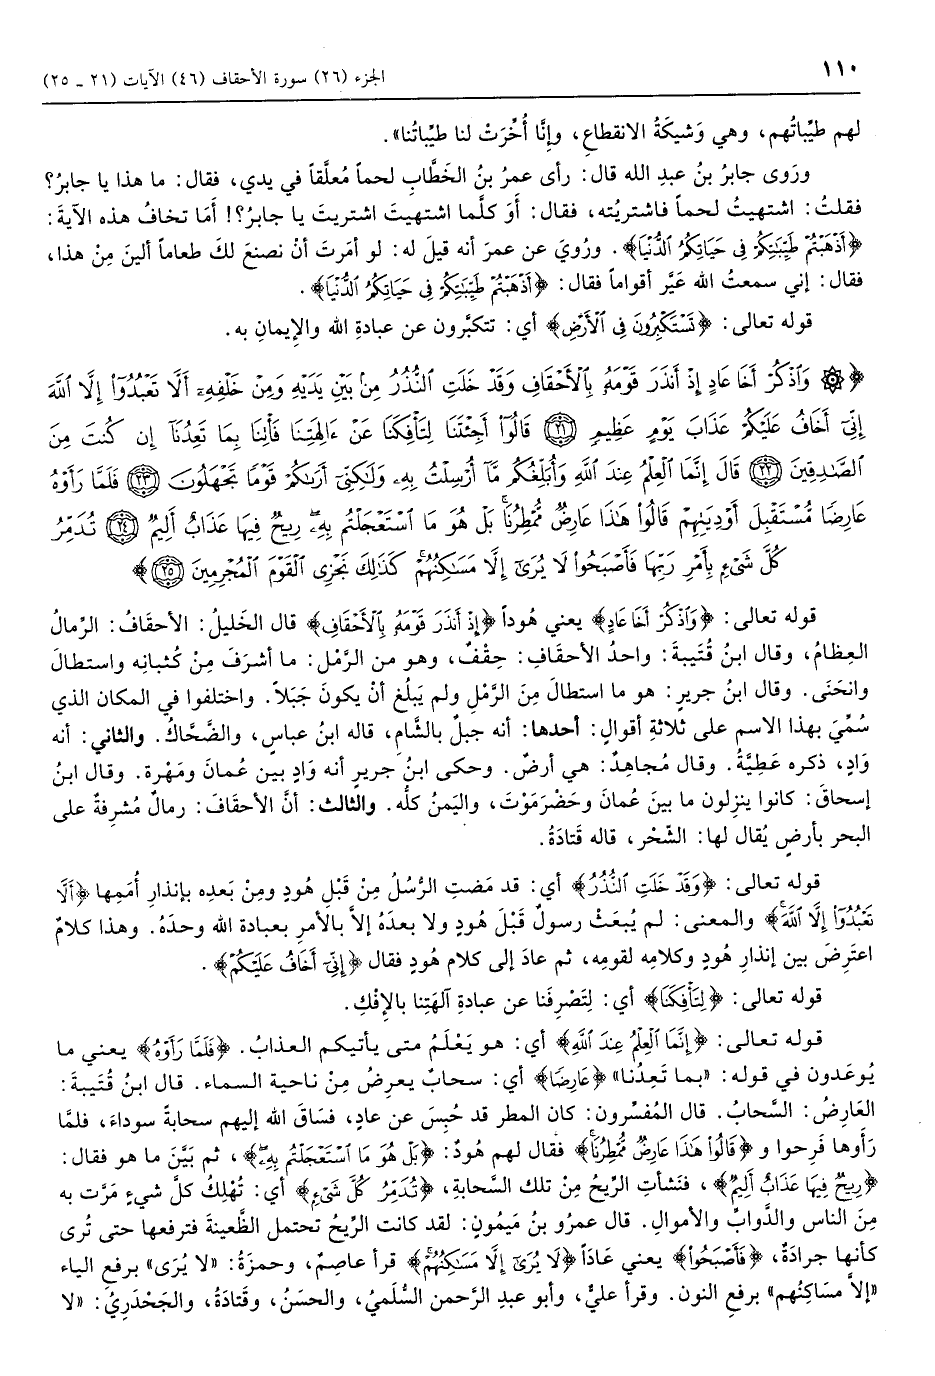 ١١٠
الجزء (٢٦) سورة الأحقاف (٤٦) الآيات (٢١ - ٢٥)
لهم طيِّباتُهم، وهي وَشيكَةُ الانقطاعِ، وإنَّا أُخِّرَتْ لنا طيِّباتُنا».
ورَوى جابرُ بنُ عبدِ الله قال: رأى عمرُ بنُ الخَطَّابِ لحماً مُعلَّقاً في يدي، فقال: ما هذا يا جابرُ؟
فقلتُ: اشتهيتُ لحماً فاشتريْتُه، فقال: أوَ كلَّما اشتهيتَ اشتريتَ يا جابرُ؟! أمَا تخافُ هذه الآيةَ:
﴿أَذْهَبْتُمْ طَيِّبَٰتِكُمْ فِى حَيَاتِكُمُ ٱلدُّنْيَا﴾. ورُويَ عن عمرَ أنه قيلَ له: لو أمَرتَ أنْ نصنعَ لكَ طعاماً ألينَ مِنْ هذا،
فقال: إني سمعتُ الله عَيَّر أقواماً فقال: ﴿أَذْهَبْتُمْ طَيِّبَٰتِكُمْ فِى حَيَاتِكُمُ ٱلدُّنْيَا﴾.
قوله تعالى: ﴿تَسْتَكْبِرُونَ فِى ٱلْأَرْضِ﴾ أي: تتكبَّرون عن عبادةِ الله والإيمانِ به.
﴿۞ وَٱذْكُرْ أَخَا عَادٍ إِذْ أَنذَرَ قَوْمَهُۥ بِٱلْأَحْقَافِ وَقَدْ خَلَتِ ٱلنُّذُرُ مِنۢ بَيْنِ يَدَيْهِ وَمِنْ خَلْفِهِۦٓ أَلَّا تَعْبُدُوٓا۟ إِلَّا ٱللَّهَ
إِنِّىٓ أَخَافُ عَلَيْكُمْ عَذَابَ يَوْمٍ عَظِيمٍ ﴿٢١﴾ قَالُوٓا۟ أَجِئْتَنَا لِتَأْفِكَنَا عَنْ ءَالِهَتِنَا فَأْتِنَا بِمَا تَعِدُنَآ إِن كُنتَ مِنَ
ٱلصَّٰدِقِينَ ﴿٢٢﴾ قَالَ إِنَّمَا ٱلْعِلْمُ عِندَ ٱللَّهِ وَأُبَلِّغُكُم مَّآ أُرْسِلْتُ بِهِۦ وَلَٰكِنِّىٓ أَرَىٰكُمْ قَوْمًا تَجْهَلُونَ ﴿٢٣﴾ فَلَمَّا رَأَوْهُ
عَارِضًا مُّسْتَقْبِلَ أَوْدِيَتِهِمْ قَالُوا۟ هَٰذَا عَارِضٌ مُّمْطِرُنَا ۚ بَلْ هُوَ مَا ٱسْتَعْجَلْتُم بِهِۦ ۖ رِيحٌ فِيهَا عَذَابٌ أَلِيمٌ ﴿٢٤﴾ تُدَمِّرُ
كُلَّ شَىْءٍۭ بِأَمْرِ رَبِّهَا فَأَصْبَحُوا۟ لَا يُرَىٰٓ إِلَّا مَسَٰكِنُهُمْ ۚ كَذَٰلِكَ نَجْزِى ٱلْقَوْمَ ٱلْمُجْرِمِينَ ﴿٢٥﴾﴾
قوله تعالى: ﴿وَٱذْكُرْ أَخَا عَادٍ﴾ يعني هُوداً ﴿إِذْ أَنذَرَ قَوْمَهُۥ بِٱلْأَحْقَافِ﴾ قال الخَليلُ: الأحقَافُ: الرِّمالُ
العِظامُ، وقال ابنُ قُتَيبةَ: واحدُ الأحقَافِ: حِقْفٌ، وهو من الرَّمْل: ما أشرَفَ مِنْ كُثبانِه واستطالَ
وانحَنَى. وقال ابنُ جريرٍ: هو ما استطالَ مِنَ الرَّمْلِ ولم يَبلُغ أنْ يكونَ جَبَلاً. واختلفوا في المكان الذي
سُمِّيَ بهذا الاسم على ثلاثةِ أقوالٍ: أحدها: أنه جبلٌ بالشَّامِ، قاله ابنُ عباسٍ، والضَّحَّاكُ. والثاني: أنه
وَادٍ، ذكره عَطِيَّةُ. وقال مُجاهدٌ: هي أرضٌ. وحكى ابنُ جريرٍ أنه وَادٍ بين عُمانَ ومَهْرة. وقال ابنُ
إسحاقَ: كانوا ينزِلون ما بينَ عُمانَ وحَضْرَمَوْتَ، واليَمنُ كلُّه. والثالث: أنَّ الأحقَافَ: رمالٌ مُشرِفةٌ على
البحر بأرضٍ يُقال لها: الشِّحْر، قاله قَتادَةُ.
قوله تعالى: ﴿وَقَدْ خَلَتِ ٱلنُّذُرُ﴾ أي: قد مَضتِ الرُّسُلُ مِنْ قَبْلِ هُودٍ ومِنْ بَعدِه بإنذارِ أُمَمِها ﴿أَلَّا
تَعْبُدُوٓا۟ إِلَّا ٱللَّهَ﴾ والمعنى: لم يُبعَثْ رسولٌ قَبْلَ هُودٍ ولا بعدَهُ إلاَّ بالأمرِ بعبادة الله وحدَهُ. وهذا كلامٌ
اعتَرِضَ بين إنذارِ هُودٍ وكلامِه لقومِه، ثم عادَ إلى كلام هُودٍ فقال ﴿إِنِّىٓ أَخَافُ عَلَيْكُمْ﴾.
قوله تعالى: ﴿لِتَأْفِكَنَا﴾ أي: لِتَصْرِفَنا عن عبادةِ آلهَتِنا بالإفْكِ.
قوله تعالى: ﴿إِنَّمَا ٱلْعِلْمُ عِندَ ٱللَّهِ﴾ أي: هو يَعْلَمُ متى يأتيكم العذابُ. ﴿فَلَمَّا رَأَوْهُ﴾ يعني ما
يُوعَدون في قوله: «بما تَعِدُنا» ﴿عَارِضًا﴾ أي: سحابٌ يعرِضُ مِنْ ناحية السماء. قال ابنُ قُتَيبةَ:
العَارِضُ: السَّحابُ. قال المُفسِّرون: كان المطر قد حُبِسَ عن عادٍ، فسَاقَ الله إليهم سحابةً سوداءَ، فلمَّا
رَأَوها فَرِحوا و ﴿قَالُوا۟ هَٰذَا عَارِضٌ مُّمْطِرُنَا﴾ فقال لهم هُودٌ: ﴿بَلْ هُوَ مَا ٱسْتَعْجَلْتُم بِهِۦ﴾، ثم بَيَّنَ ما هو فقال:
﴿رِيحٌ فِيهَا عَذَابٌ أَلِيمٌ﴾، فنَشأتِ الرِّيحُ مِنْ تلك السَّحابةِ، ﴿تُدَمِّرُ كُلَّ شَىْءٍۭ﴾ أي: تُهْلِكُ كلَّ شيءٍ مَرَّت به
مِنَ الناس والدَّوابِّ والأموالِ. قال عمرُو بنُ مَيمُونٍ: لقد كانت الرِّيحُ تحتمل الظَّعينةَ فترفعها حتى تُرى
كأنها جرادَةٌ، ﴿فَأَصْبَحُوا۟﴾ يعني عَاداً ﴿لَا يُرَىٰٓ إِلَّا مَسَٰكِنُهُمْ﴾ قرأ عاصِمٌ، وحمزَةُ: «لا يُرَى» برفعِ الياء
«إلاَّ مسَاكِنُهم» برفعِ النون. وقرأ عليٌّ، وأبو عبدِ الرَّحمن السُّلَميُّ، والحسَنُ، وقَتادَةُ، والجَحْدَريُّ: «لا